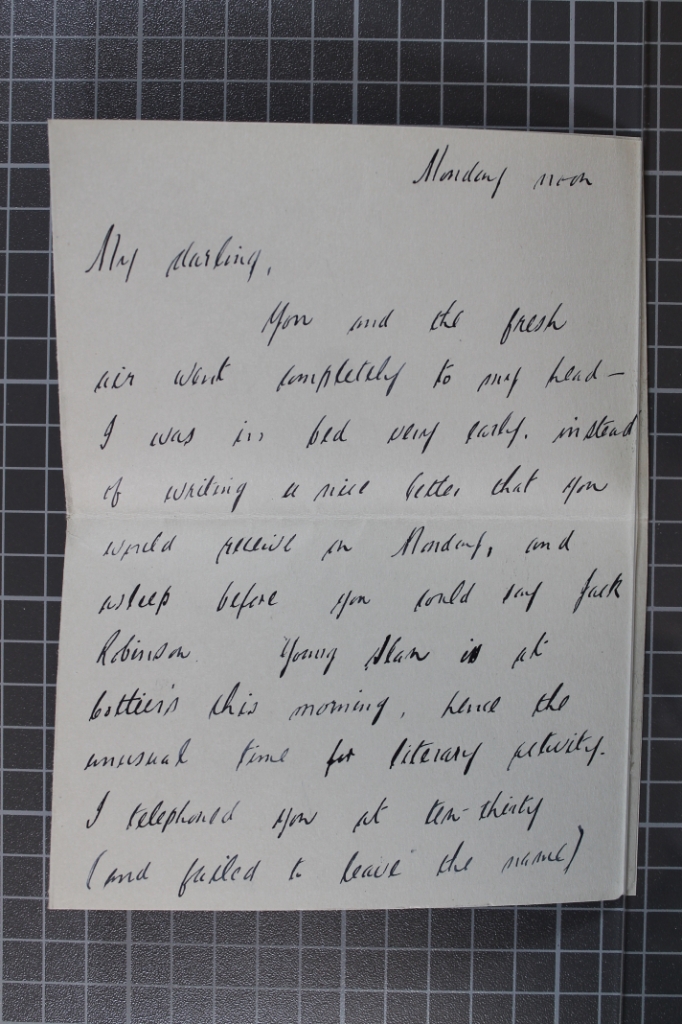 Monday noon
My darling,
You and the fresh
air went completely to my head –
I was in bed very early, instead
of writing a nice letter that you
would receive on Monday, and
asleep before you could say Jack
Robinson Young Alan is at
this morning, hence the
unusual time for literary activity.
I telephoned you at ten-thirty
(and failed to leave the name)